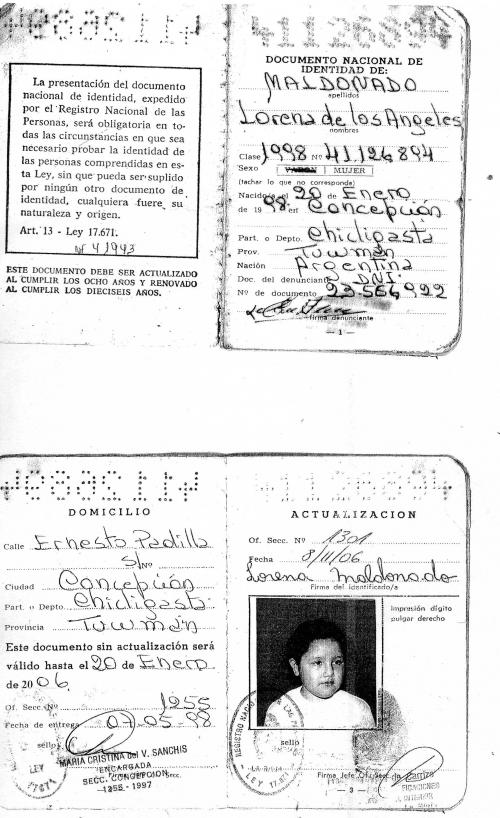 41126894
La presentación del documento
nacional de identidad, expedido
por el Registro Nacional de las
Personas, será obligatoria en to-
das las circunstancias en que sea
necesario probar la identidad de
las personas comprendidas en es-
ta Ley, sin que pueda ser suplido
por ningún otro documento de
identidad, cualquiera fuere su
naturaleza y origen.
Art. 13 - Ley 17.671.
ESTE DOCUMENTO DEBE SER ACTUALIZADO
AL CUMPLIR LOS OCHO AÑOS Y RENOVADO
AL CUMPLIR LOS DIECISEIS AÑOS.
41126894
DOCUMENTO NACIONAL DE
IDENTIDAD DE:
MALDONADO
apellidos
Lorena de los Angeles
nombres
Clase 1998 Nº 41.126.894
Sexo VARON MUJER
(tachar lo que no corresponde)
Nacido/a el 20 de Enero
de 1998. en Concepción
Part. o Depto. Chicligasta
Prov. Tucumán
Nación Argentina
Doc. del denunciante DNI.
Nº de documento 23.564.922
firma denunciante
— 1 —
41126894
DOMICILIO
Calle Ernesto Padilla
S/Nº
Ciudad Concepción
Part. o Depto. Chicligasta
Provincia Tucumán
Este documento sin actualización será
válido hasta el 20 de Enero
de 2006.
Of. Secc. Nº 1255
Fecha de entrega 07-05-98
sello
MARIA CRISTINA del V. SANCHIS
ENCARGADA
SECC. CONCEPCION Secc.
1255 - 1997
LEY 17671
41126894
ACTUALIZACION
Of. Secc. Nº 1301
Fecha 8/11/06
Lorena Maldonado
Firma del identificado/a
Impresión dígito
pulgar derecho
sello
LEY 17.671
Firma Jefe Of. Secc.
— 3 —